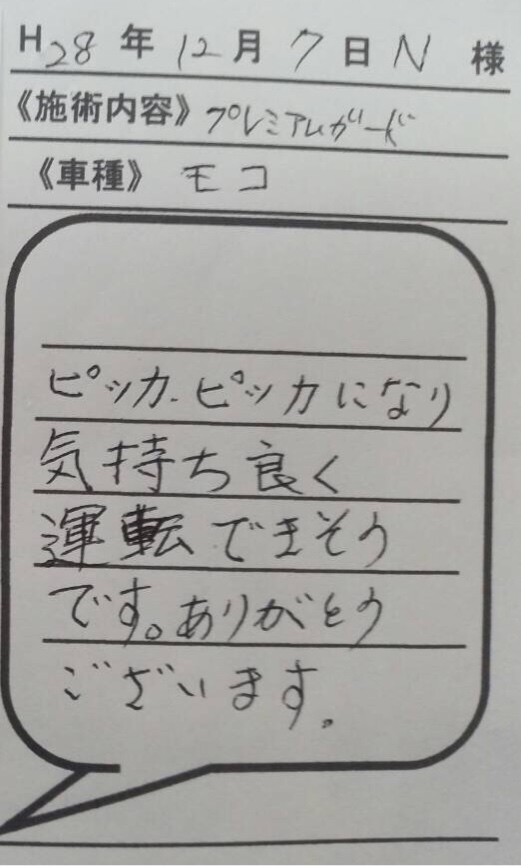 H28年12月7日N 様
《施術内容》プレミアムガード
《車種》モコ
ピッカ、ピッカになり
気持ち良く
運転できそう
です。ありがとう
ございます。